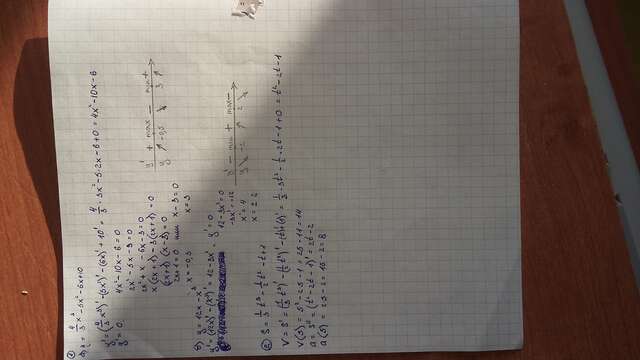 ①
a) y = 4/3 x³ - 5x² - 6x + 10
y' = (4/3 x³)' - (5x²)' - (6x)' + 10' = 4/3 · 3x² - 5 · 2x - 6 + 0 = 4x² - 10x - 6
y' = 0 4x² - 10x - 6 = 0
2x² - 5x - 3 = 0
2x² + x - 6x - 3 = 0
x(2x + 1) - 3(2x + 1) = 0
(2x + 1) (x - 3) = 0
2x + 1 = 0 или x - 3 = 0
x = -0,5 x = 3
y' + max - min +
y -0,5 3
б) y = 12x - x³
y' = (12x)' - (x³)' = 12 - 3x² y' = 0
12 - 3x² = 0
-3x² = -12
x² = 4
x = ± 2
y' - min + max -
y -2 2
② S = 1/3 t³ - 1/2 t² - t + 1
V = S' = (1/3 t³)' - (1/2 t²)' - (t)' + (1)' = 1/3 · 3t² - 1/2 · 2t - 1 + 0 = t² - 2t - 1
V(5) = 5² - 2·5 - 1 = 25 - 11 = 14
a = S'' = (t² - 2t - 1)' = 2t - 2
a(5) = 2·5 - 2 = 10 - 2 = 8